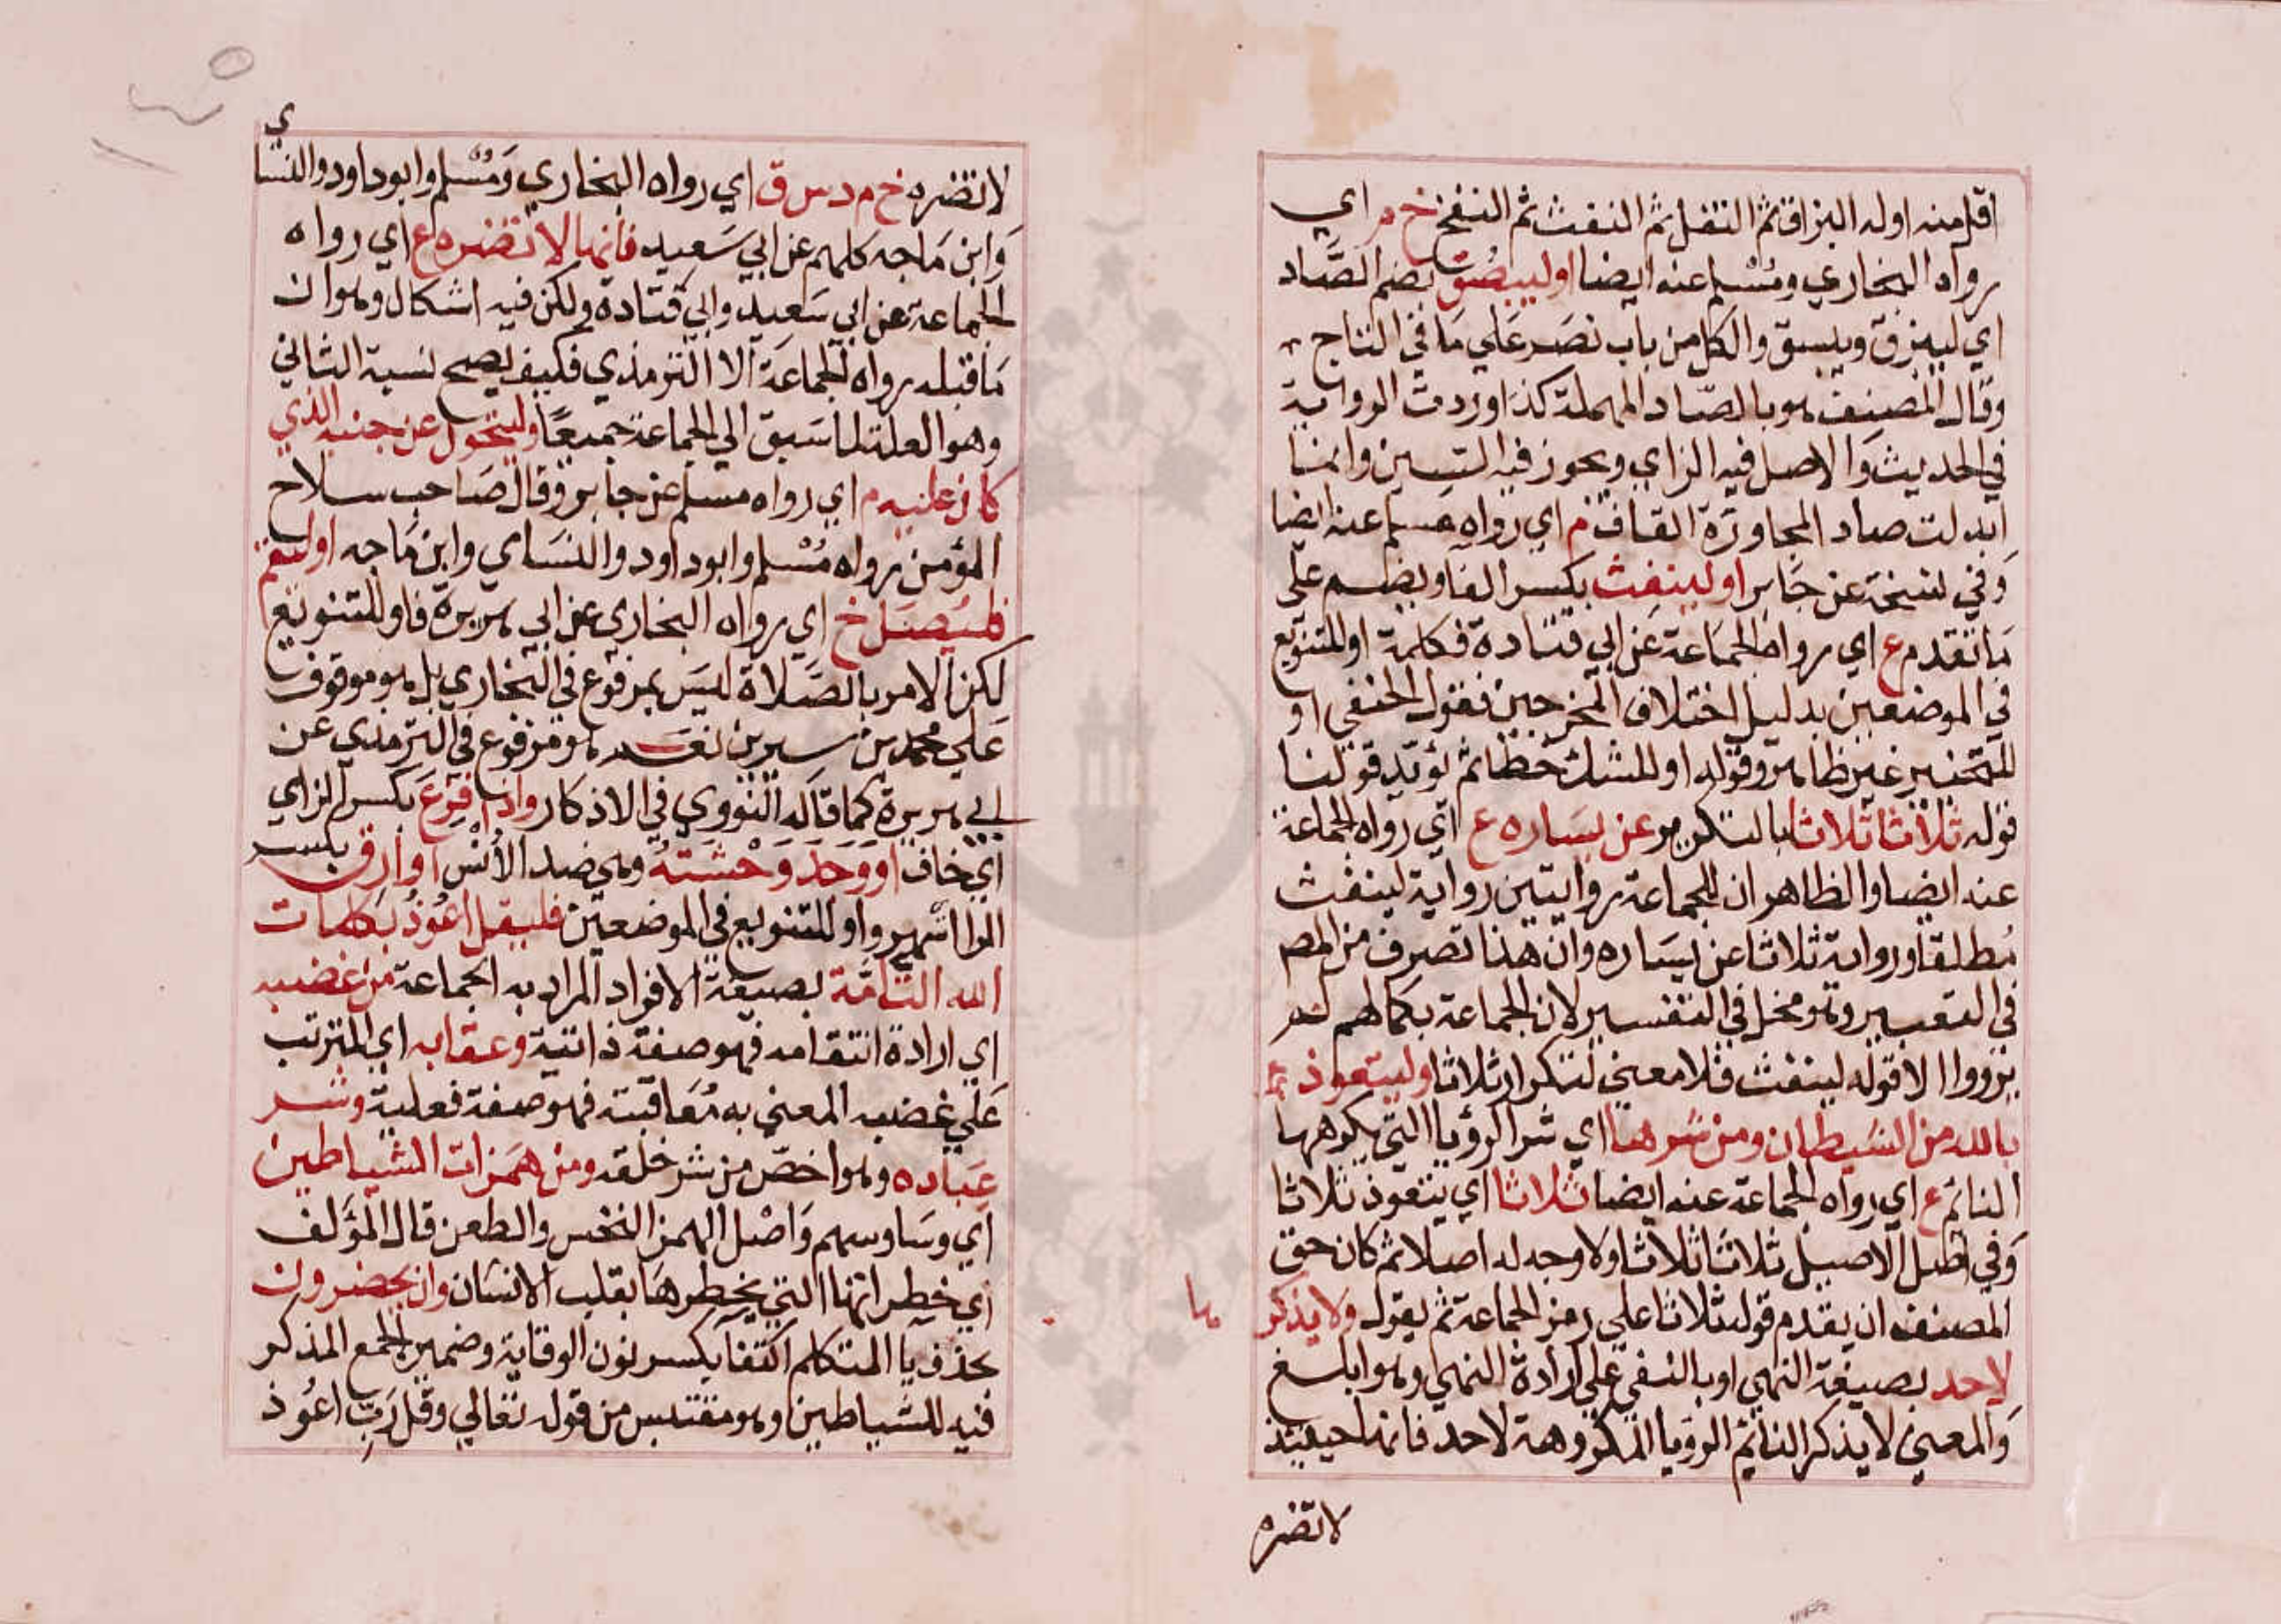 اقل منه اوله البزاق ثم التفل ثم النفث ثم النفخ خ م اي
رواه البخاري ومسلم عنه ايضا او ليبصق بضم الصاد
اي ليبزق ويبسق والكل من باب نصر علي ما في التاج
وقال المصنف هو بالصاد المهملة كذا وردت الرواية
في الحديث والاصل فيه الزاي ويجوز فيه السين وانما
ابدلت صاد المجاورة القاف م اي رواه مسلم عنه ايضا
وفي نسخة عن جابر او لينفث بكسر الفا وبضم علي
ما تقدم ع اي رواه الجماعة عن ابي قتادة فكلمة او للتنويع
في الموضعين بدليل اختلاف المخرجين فقول الحنفي او
للتخيير غير ظاهر وقوله او للشك خطا ثم يؤيد قولنا
قوله ثلاثا ثلاثا بالتكرير عن يساره ع اي رواه الجماعة
عنه ايضا والظاهر ان للجماعة روايتين رواية لينفث
مطلقا ورواية ثلاثا عن يساره وان هذا تصرف من المص
في التعبير وهو مخل في التفسير لان الجماعة بكمالهم لم
يرووا الا قوله لينفث فلا معني لتكرار ثلاثا وليتعوذ
بالله من الشيطان ومن شرها اي شر الرؤيا التي يكرهها
النائم ع اي رواه الجماعة عنه ايضا ثلاثا اي يتعوذ ثلاثا
وفي اصل الاصيل ثلاثا ثلاثا ولا وجه له اصلا ثم كان حق
المصنف ان يقدم قوله ثلاثا علي رمز الجماعة ثم يقول ولا يذكرها
لاحد بصيغة النهي او بالنفي علي ارادة النهي وهو ابلغ
والمعني لا يذكر النائم الرؤيا المكروهة لاحد فانها حينئذ
لا تضره
لا تضره خ م د س ق اي رواه البخاري ومسلم وابو داود والنسائي
وابن ماجه كلهم عن ابي سعيد فانها لا تضره ع اي رواه
الجماعة عن ابي سعيد وابي قتادة ولكن فيه اشكال وهو ان
ما قبله رواه الجماعة الا الترمذي فكيف يصح نسبة الثاني
وهو العلة لما سبق الي الجماعة جميعا وليتحول عن جنبه الذي
كان عليه م اي رواه مسلم عن جابر وقال صاحب سلاح
المؤمن رواه مسلم وابو داود والنسائي وابن ماجه او ليقم
فليصل خ اي رواه البخاري عن ابي هريرة فاو للتنويع
لكن الامر بالصلاة ليس بمرفوع في البخاري بل هو موقوف
علي محمد بن سيرين نعم هو مرفوع في الترمذي عن
ابي هريرة كما قاله النووي في الاذكار واذا فزع بكسر الزاي
اي خاف او وجد وحشة وهي ضد الانس او ارق بكسر
الرا اي سهر واو للتنويع في الموضعين فليقل اعوذ بكلمات
الله التامة بصيغة الافراد المراد به الجماعة من غضبه
اي ارادة انتقامه فهو صفة ذاتية وعقابه اي المترتب
علي غضبه المعني به معاقبته فهو صفة فعلية وشر
عباده وهو اخص من شر خلقه ومن همزات الشياطين
اي وساوسهم واصل الهمز النخس والطعن قال المؤلف
اي خطراتها التي يخطرها بقلب الانسان وان يحضرون
بحذف يا المتكلم اكتفا بكسر نون الوقاية وضمير الجمع المذكر
فيه للشياطين وهو مقتبس من قوله تعالي وقل رب اعوذ